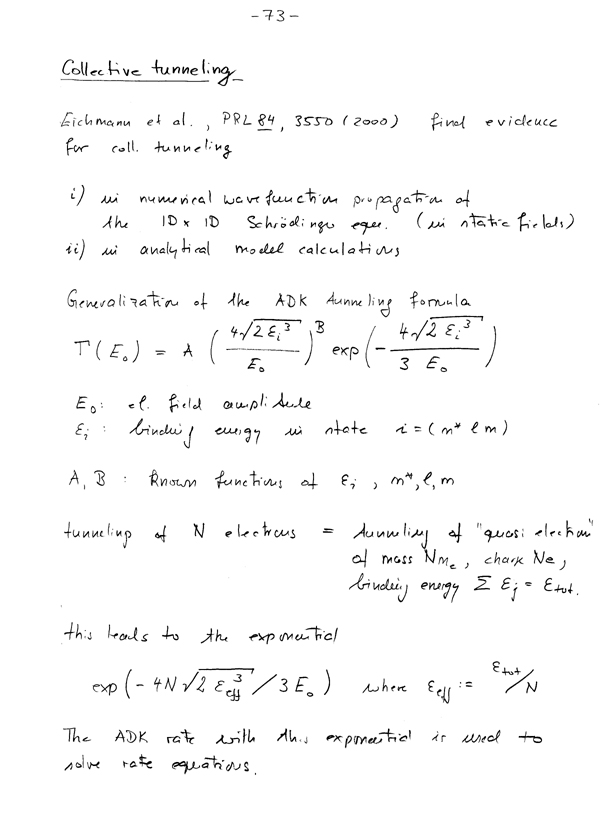 -73-
Collective tunneling
Eichmann et al., PRL 84, 3550 (2000) find evidence
for coll. tunneling
i) in numerical wavefunction propagation of
the 1D x 1D Schrödinger eqn. (in static fields)
ii) in analytical model calculations
Generalization of the ADK tunneling formula
Γ(E₀) = A (4√(2 ε_i³) / E₀)^B exp(- 4√(2 ε_i³) / 3 E₀)
E₀: el. field amplitude
ε_i: binding energy in state i = (n* l m)
A, B : known functions of ε_i, n*, l, m
tunneling of N electrons = tunneling of "quasi electron"
of mass Nm_e, charge Ne,
binding energy Σ ε_j = ε_tot.
this leads to the exponential
exp(- 4N√(2 ε_eff³) / 3E₀) where ε_eff := ε_tot/N
The ADK rate with this exponential is used to
solve rate equations.